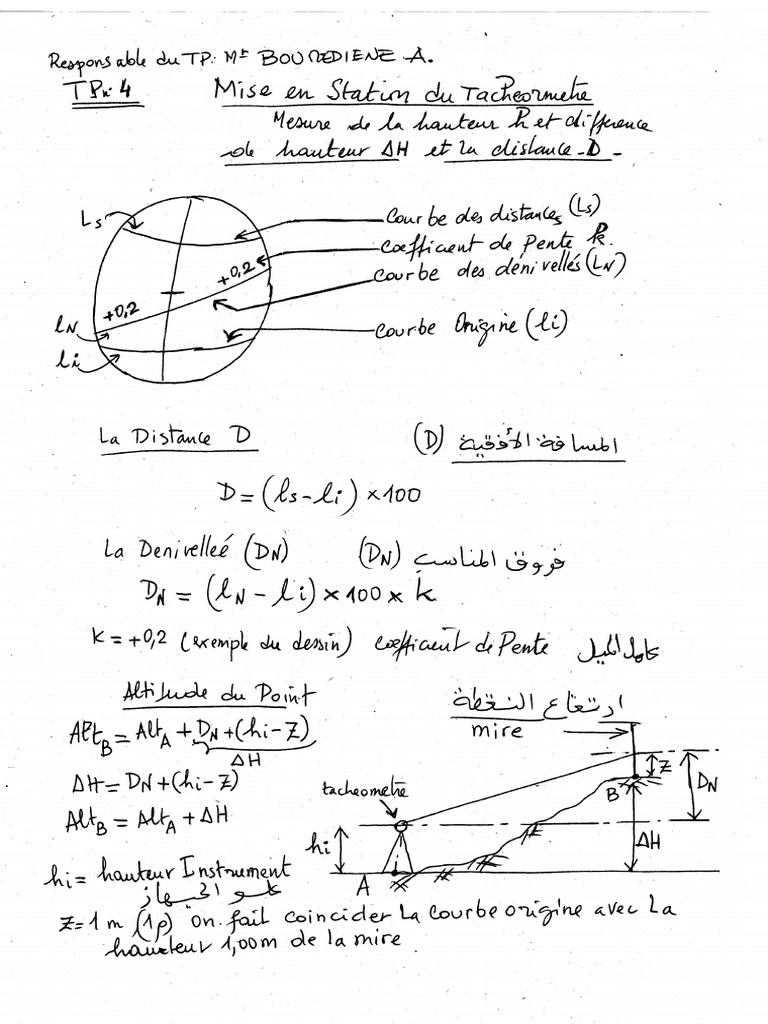 Responsable du TP. Mr BOUMEDIENE A.
TPn: 4 Mise en Station du Tacheometre
Mesure de la hauteur h et difference
de hauteur ΔH et la distance D -
Ls
Courbe des distances (Ls)
Coefficient de Pente k.
Courbe des dénivellés (LN)
+0,2
+0,2
lN
Courbe Origine (li)
li
La Distance D (D) المسافة الأفقية
D = (ls - li) × 100
La Denivelleé (DN) (DN) فروق المناسب
DN = (lN - li) × 100 × k
k = +0,2 (exemple du dessin) coefficient de Pente عامل الميل
Altitude du Point ارتفاع النقطة
AltB = AltA + DN + (hi - Z)
ΔH
mire
ΔH = DN + (hi - Z)
AltB = AltA + ΔH
tacheometre
Z
DN
B
hi
ΔH
A
hi = hauteur Instrument
علو الجهاز
Z = 1 m (1م) On fait coincider La Courbe origine avec La
hauteur 1,00m de la mire